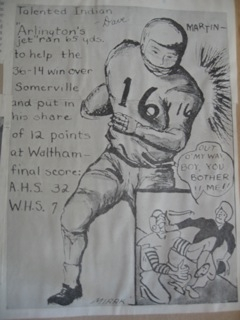 Talented Indian
Dave
MARTIN—
Arlington's
jet ran 65 yds.
to help the
36-14 win over
Somerville
and put in
his share
of 12 points
at Waltham—
final score:
A.H.S. 32
W.H.S. 7
16
OUT
O' MY WAY
BOY, YOU
BOTHER
ME!!